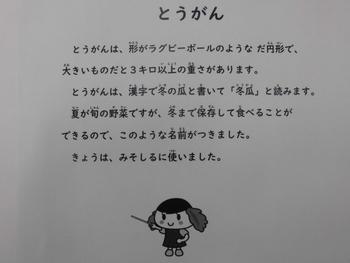 とうがん
とうがんは、形がラグビーボールのような だ円形で、
大きいものだと３キロ以上の重さがあります。
とうがんは、漢字で冬の瓜と書いて「冬瓜」と読みます。
夏が旬の野菜ですが、冬まで保存して食べることが
できるので、このような名前がつきました。
きょうは、みそしるに使いました。